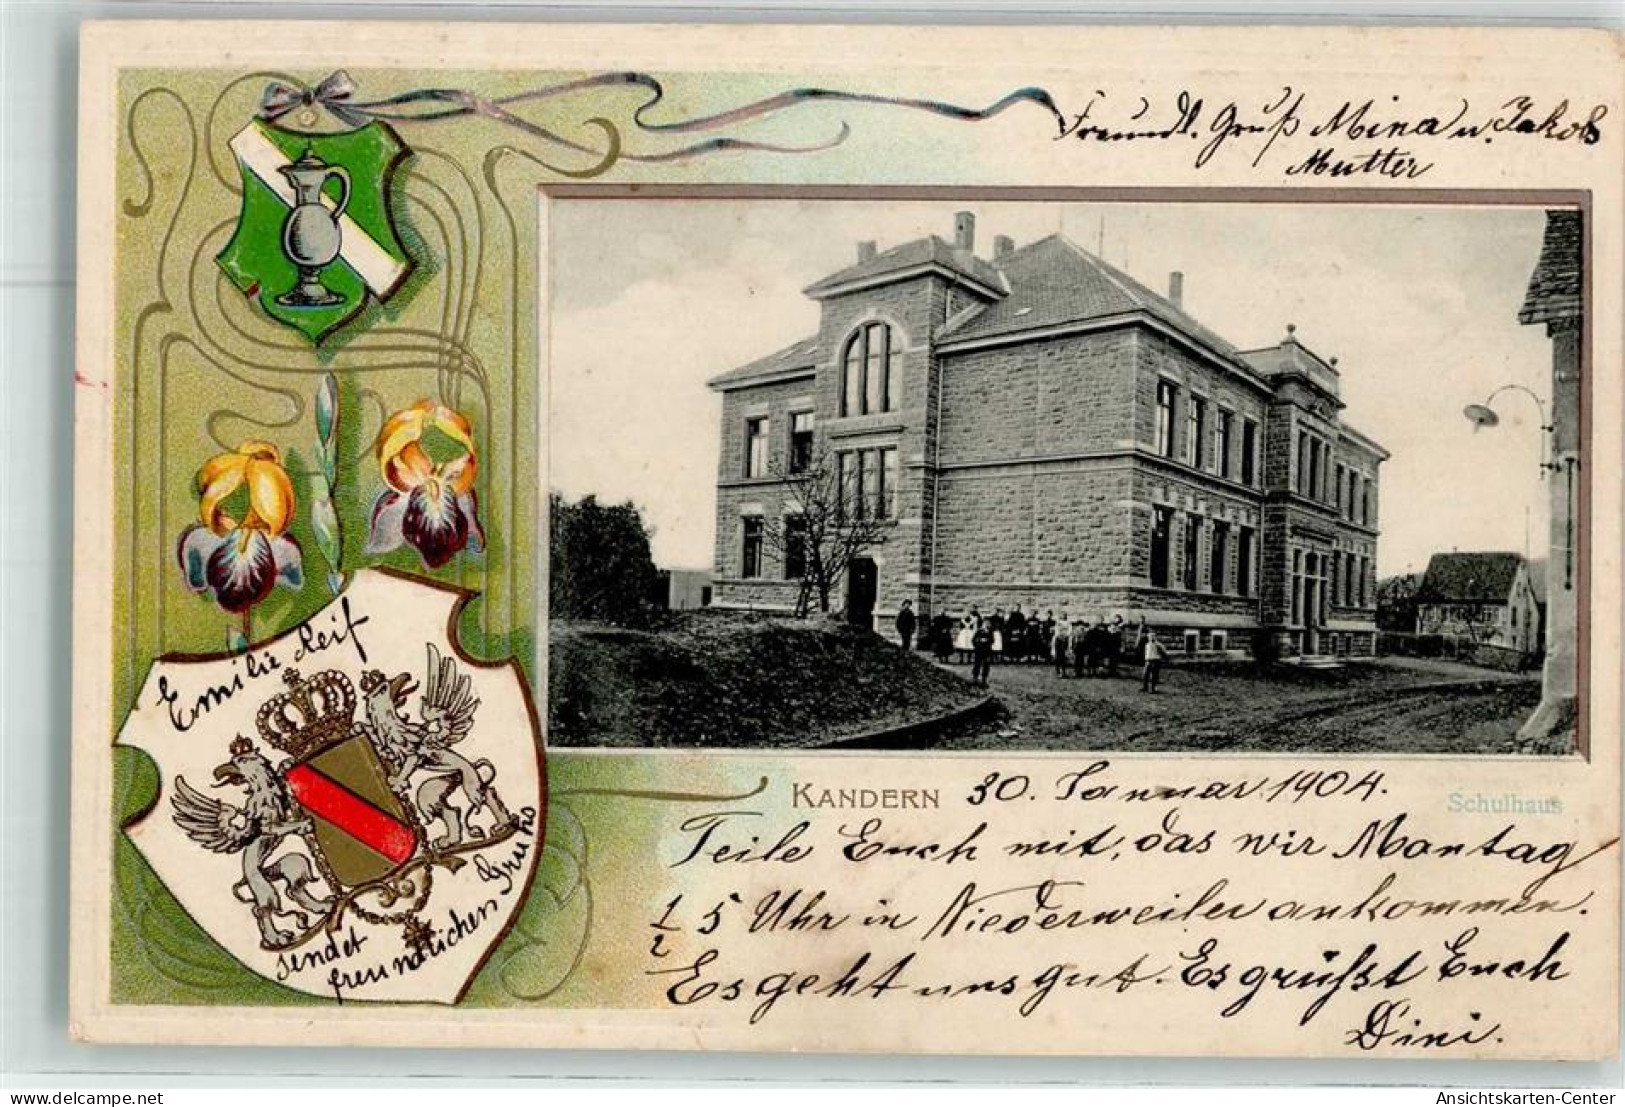 Freundl. Gruß Mina u. Jakob
Mutter
Emilie Reif
sendet
freundlichen Gruhs
KANDERN 30. Januar. 1904.
Schulhaus
Teile Euch mit, das wir Montag
1/2 5 Uhr in Niederweiler ankommen.
Es geht uns gut. Es grüßst Euch
Dini.
oldthing.de
Ansichtskarten-Center